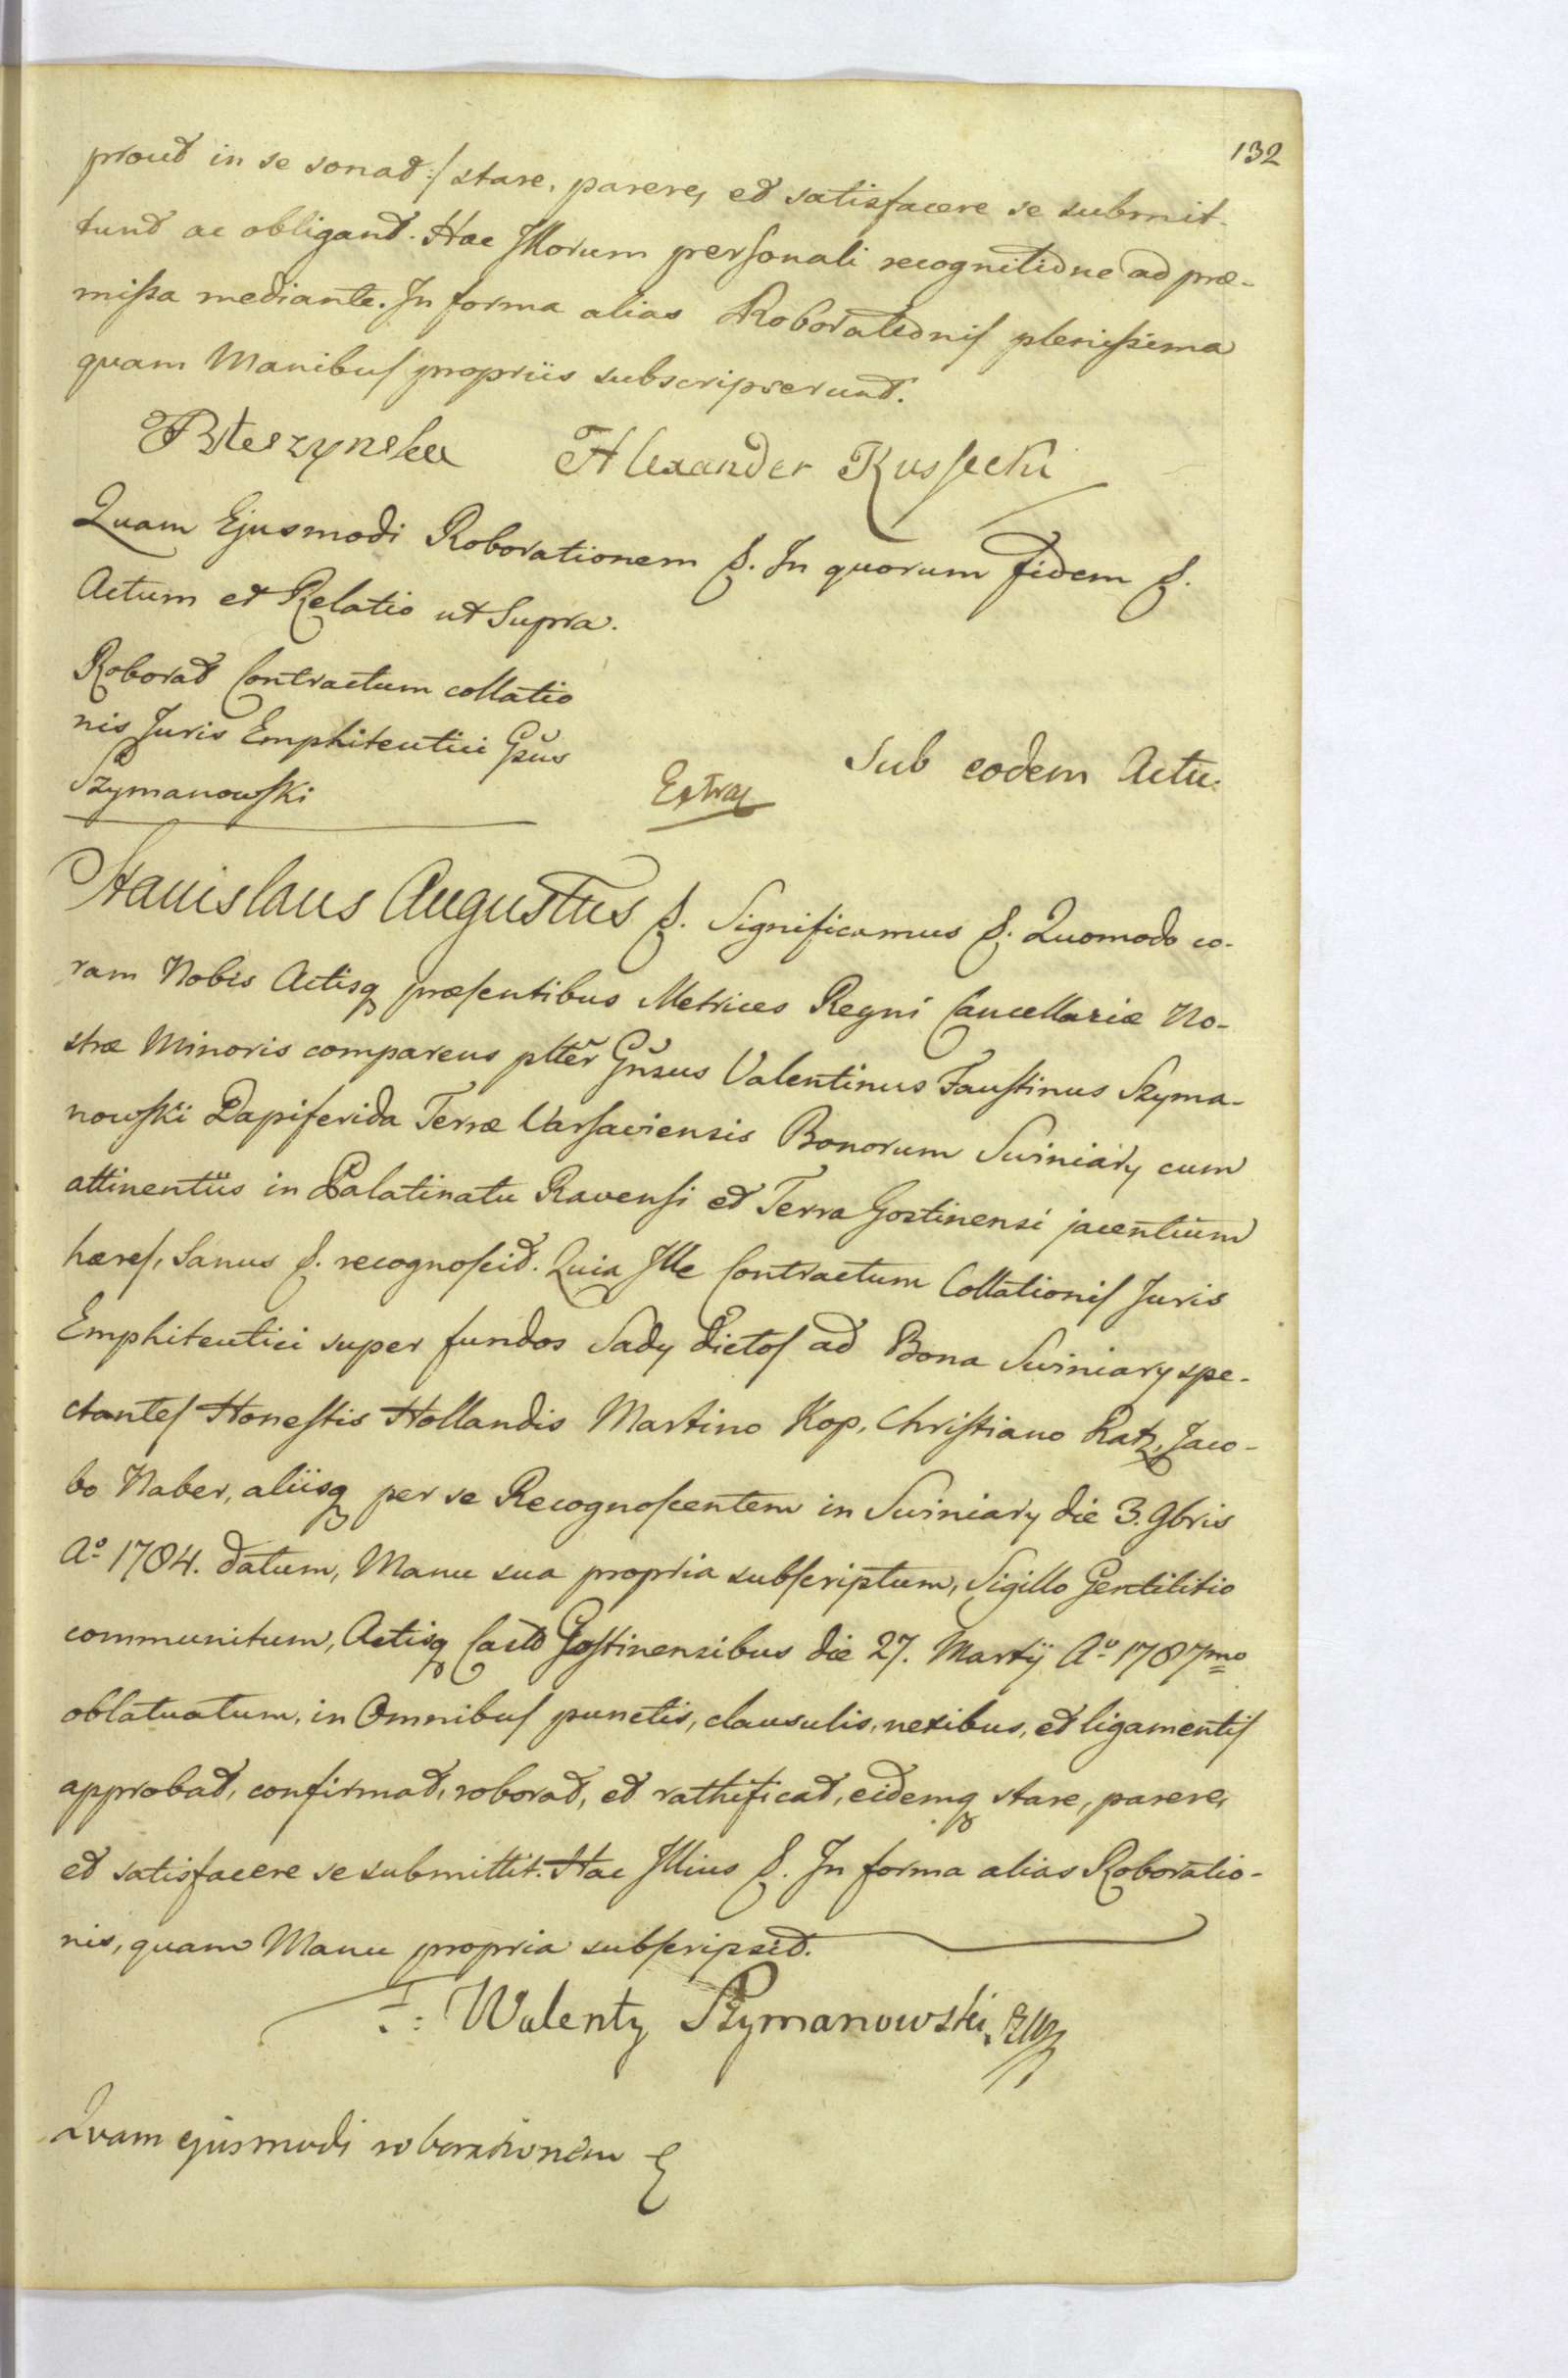 132
prout in se sonat:/ stare, parere, et satisfacere se submit-
tunt ac obligant. Hac Illorum personali recognitione ad præ-
missa mediante. In forma alias Roborationis plenissima
quam Manibus propriis subscripserunt.
Alexander Kussecki
Quam Ejusmodi Roborationem &. In quorum fidem &.
Actum et Relatio ut Supra.
Roborat Contractum collatio
nis Juris Emphiteutici Gsus
Szymanowski
Extrax
Sub eodem Actu.
Stanislaus Augustus &. Significamus &. Quomodo co-
ram Nobis Actisq præsentibus Metrices Regni Cancellariæ No-
stræ Minoris comparens pltter Gnsus Valentinus Faustinus Szyma-
nowski Dapiferida Terræ Varsaviensis Bonorum Swiniary cum
attinentiis in Palatinatu Ravensi et Terra Gostinensi jacentium
hæres, Sanus &. recognoscit. Quia Ille Contractum Collationis Juris
Emphiteutici super fundos Sady dictos ad Bona Swiniary spe-
ctantes Honestis Hollandis Martino Kop, Christiano Ratz, Jaco-
bo Naber, aliisq per se Recognoscentem in Swiniary die 3. 9bris
Aº 1784. datum, Manu sua propria subscriptum, Sigillo Gentilitio
communitum, Actisq Castr Gostinensibus die 27. Martij Aº 1787mo
oblatuatum, in Omnibus punctis, clausulis, nexibus, et ligamentis
approbat, confirmat, roborat, et rathificat, eidemq stare, parere,
et satisfacere se submittit. Hac Illius &. In forma alias Roboratio-
nis, quam Manu propria subscripsit.
F: Walenty Szymanowski
Quam ejusmodi roborationem &